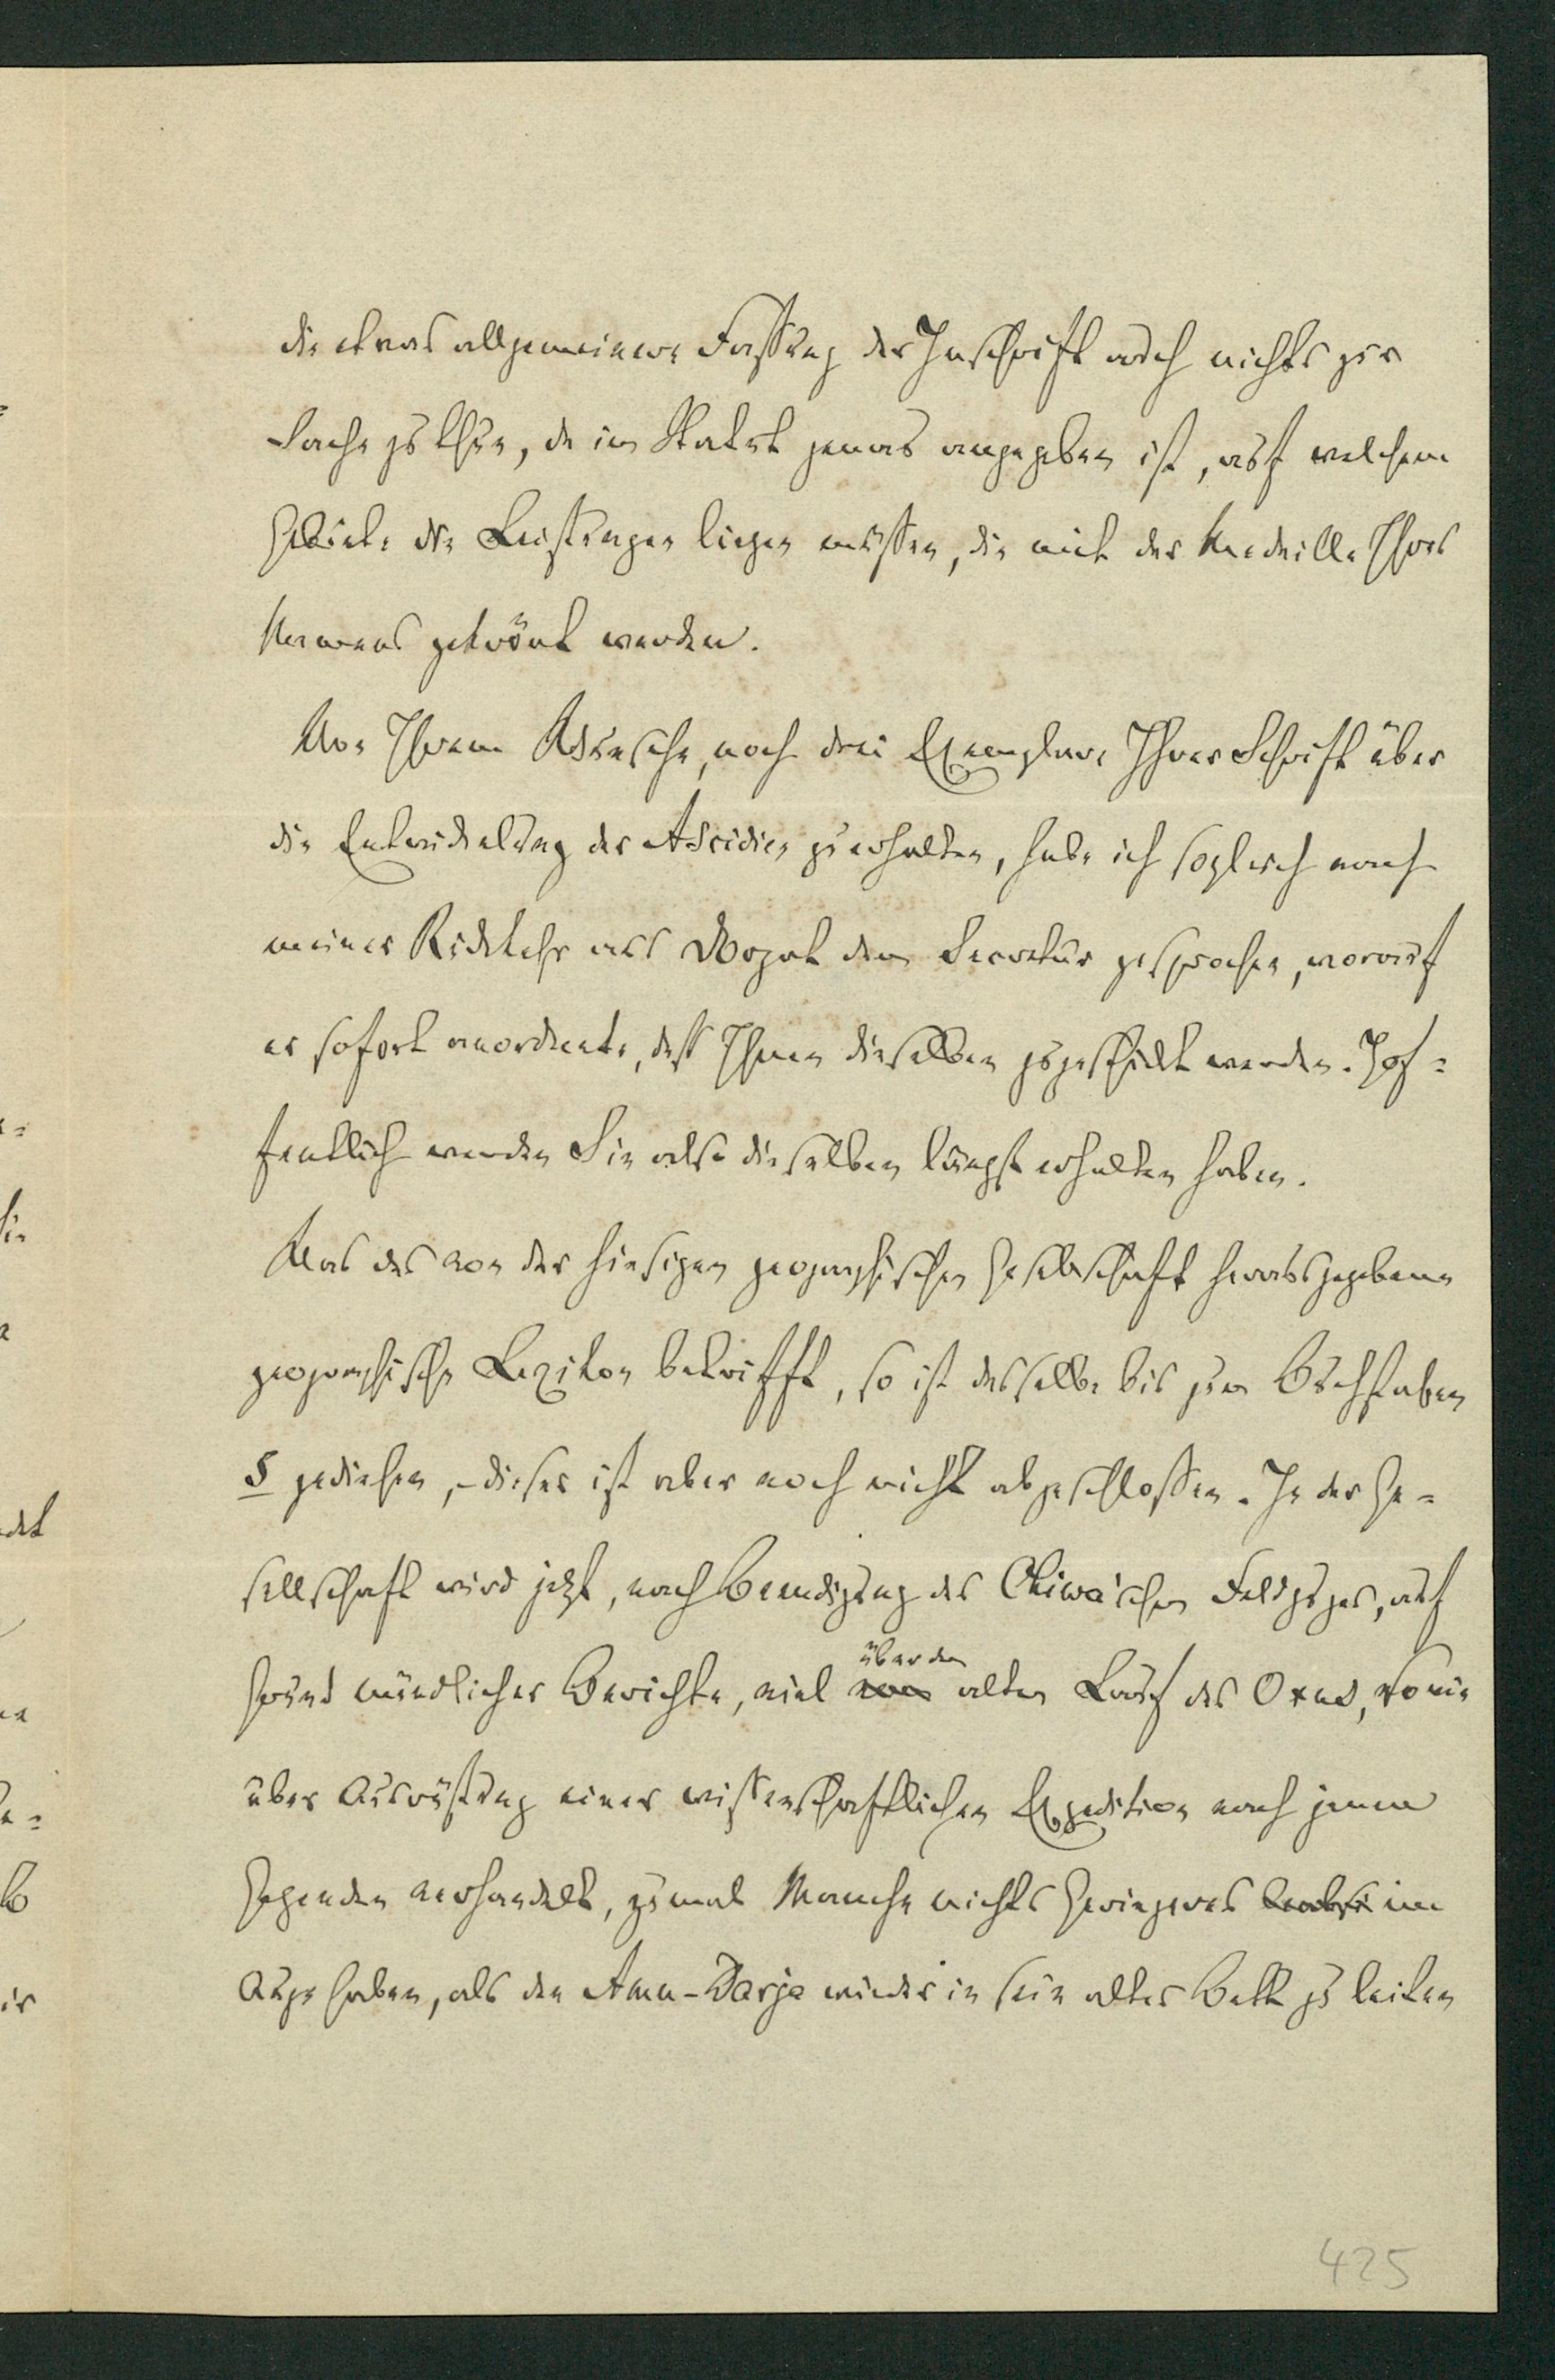 die etwas allgemeinere Fassung der Inschrift auch nichts zur
Sache zu thun, da im Statut genau angegeben ist, auf welchem
Gebiete die Leistungen liegen müssen, die mit der Medaille Ihres
Namens gekrönt werden.
Von Ihrem Wunsche, noch drei Exemplare Ihrer Schrift über
die Entwickelung der Ascidien zu erhalten, habe ich sogleich nach
meiner Rückkehr aus Dorpat dem Secretär gesprochen, worauf
er sofort anordnete, daß Ihnen dieselben zugeschickt werden. Hof-
fentlich werden Sie also dieselben längst erhalten haben.
Was das von der hiesigen geographischen Gesellschaft herausgegebene
geographische Lexikon betrifft, so ist dasselbe bis zum Buchstaben
S gediehen, – dieser ist aber noch nicht abgeschlossen. In der Ge-
sellschaft wird jetzt, nach Beendigung des Chiwa'schen Feldzuges, auf
Grund mündlicher Berichte, viel über den alten Lauf des Oxus, sowie
über Ausrüstung einer wissenschaftlichen Expedition nach jenen
Gegenden verhandelt, zumal Manche nichts Geringeres im
Auge haben, als den Amu-Darja wieder in sein altes Bett zu leiten
425